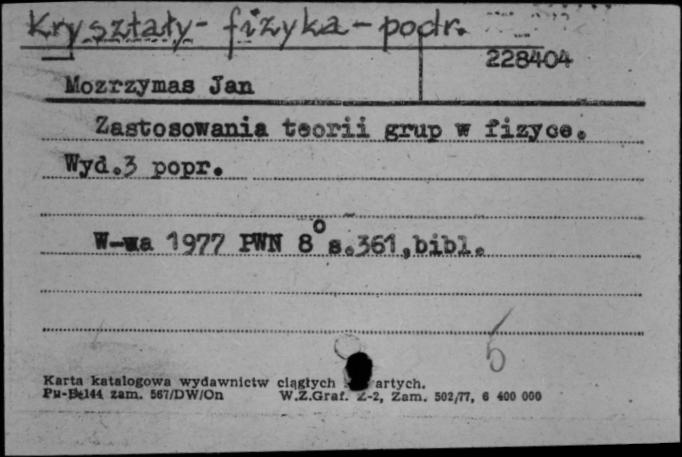 Kryształy - fizyka - podr.
228404
Mozrzymas Jan
Zastosowania teorii grup w fizyce.
Wyd.3 popr.
W-wa 1977 PWN 8° s.361,bibl.
5
Karta katalogowa wydawnictw ciągłych artych.
zam. 567/DW/On W.Z.Graf. Z-2, Zam. 502/77, 6 400 000